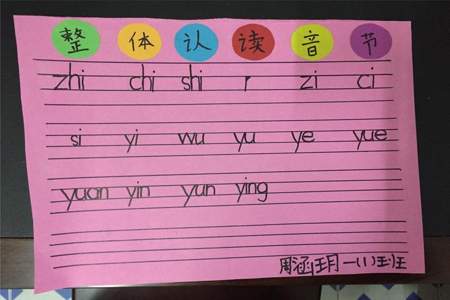 整体认读音节
zhi chi shi r zi ci
si yi wu yu ye yue
yuan yin yun ying
周涵玥 一(1)班